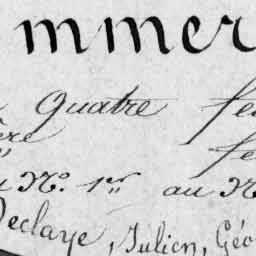 mmer
Quatre fe
ère fe
u N.º 1er au N
Declaye, Julien, Géo